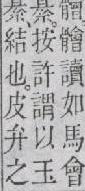 䯤䯤讀如馬會
綦。按許謂以玉
綦結也。皮弁之